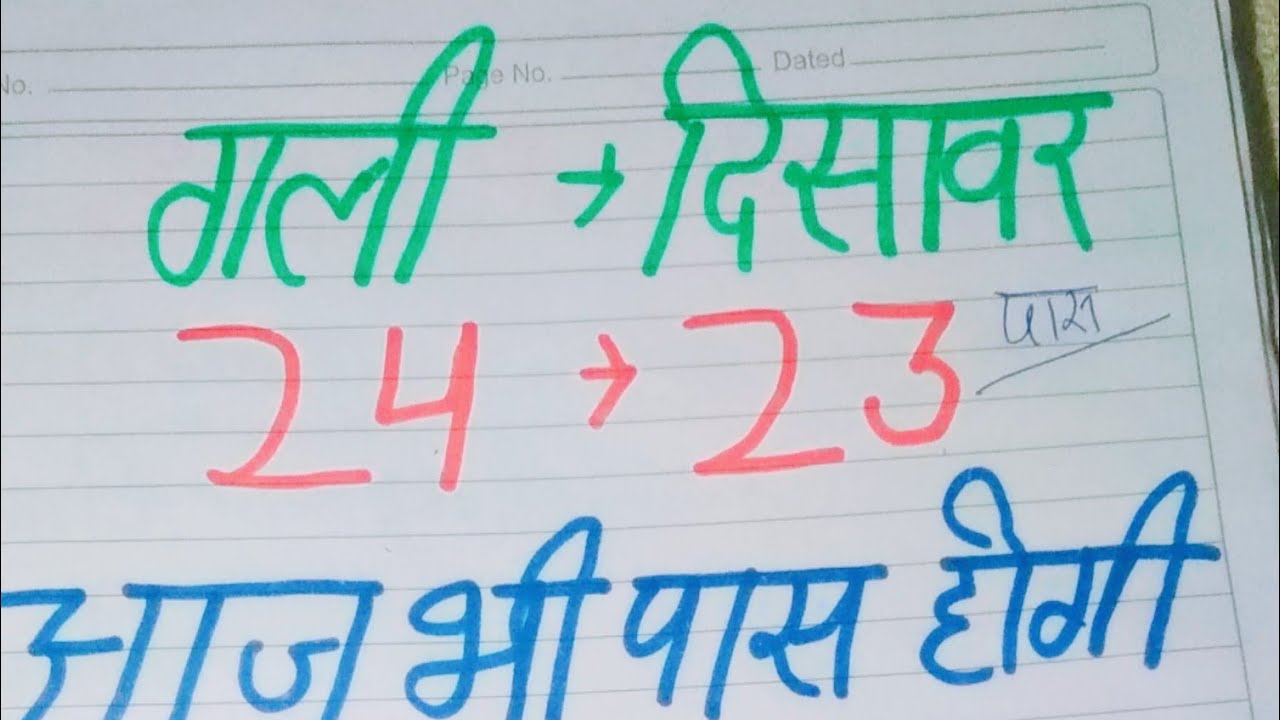 No. Page No. Dated
गली → दिसावर
24 → 23 पास
आज भी पास होगी